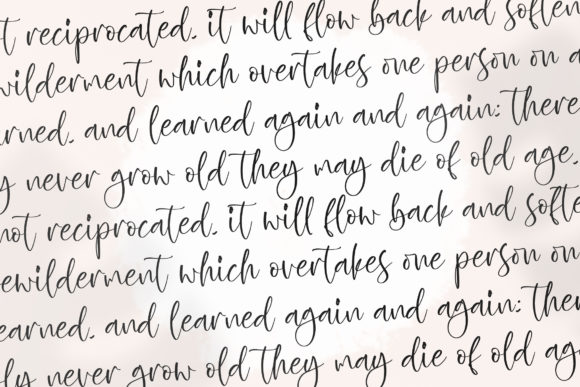 ot reciprocated. it will flow back and soften
wilderment which overtakes one person on a
arned. and learned again and again: There
y never grow old they may die of old age.
not reciprocated. it will flow back and softe
ewilderment which overtakes one person on
earned. and learned again and again: Ther
ly never grow old they may die of old ag